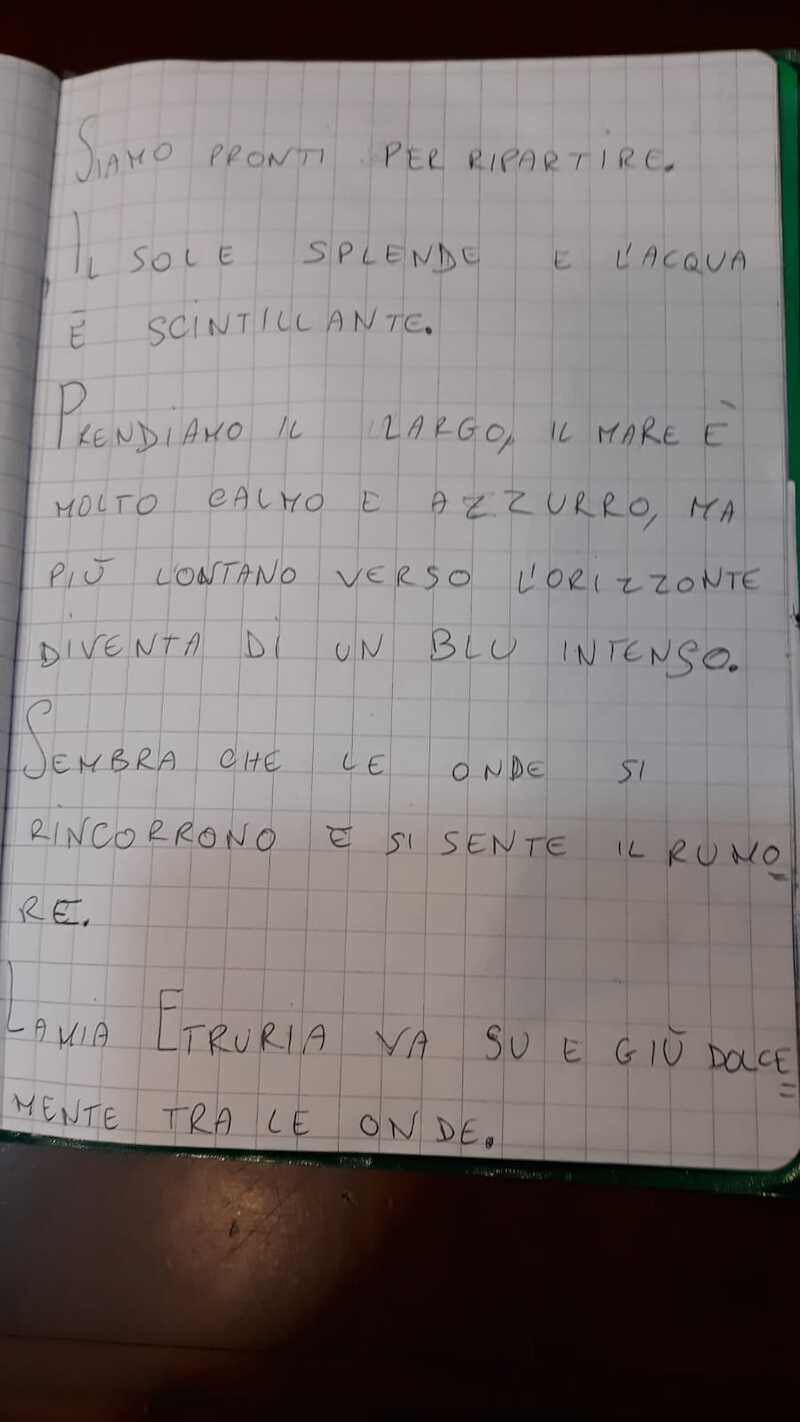 SIAMO PRONTI PER RIPARTIRE.
IL SOLE SPLENDE E L'ACQUA
È SCINTILLANTE.
PRENDIAMO IL LARGO, IL MARE È
MOLTO CALMO E AZZURRO, MA
PIÙ LONTANO VERSO L'ORIZZONTE
DIVENTA DI UN BLU INTENSO.
SEMBRA CHE LE ONDE SI
RINCORRONO E SI SENTE IL RUMO
RE.
LA MIA ETRURIA VA SU E GIÙ DOLCE
MENTE TRA LE ONDE.